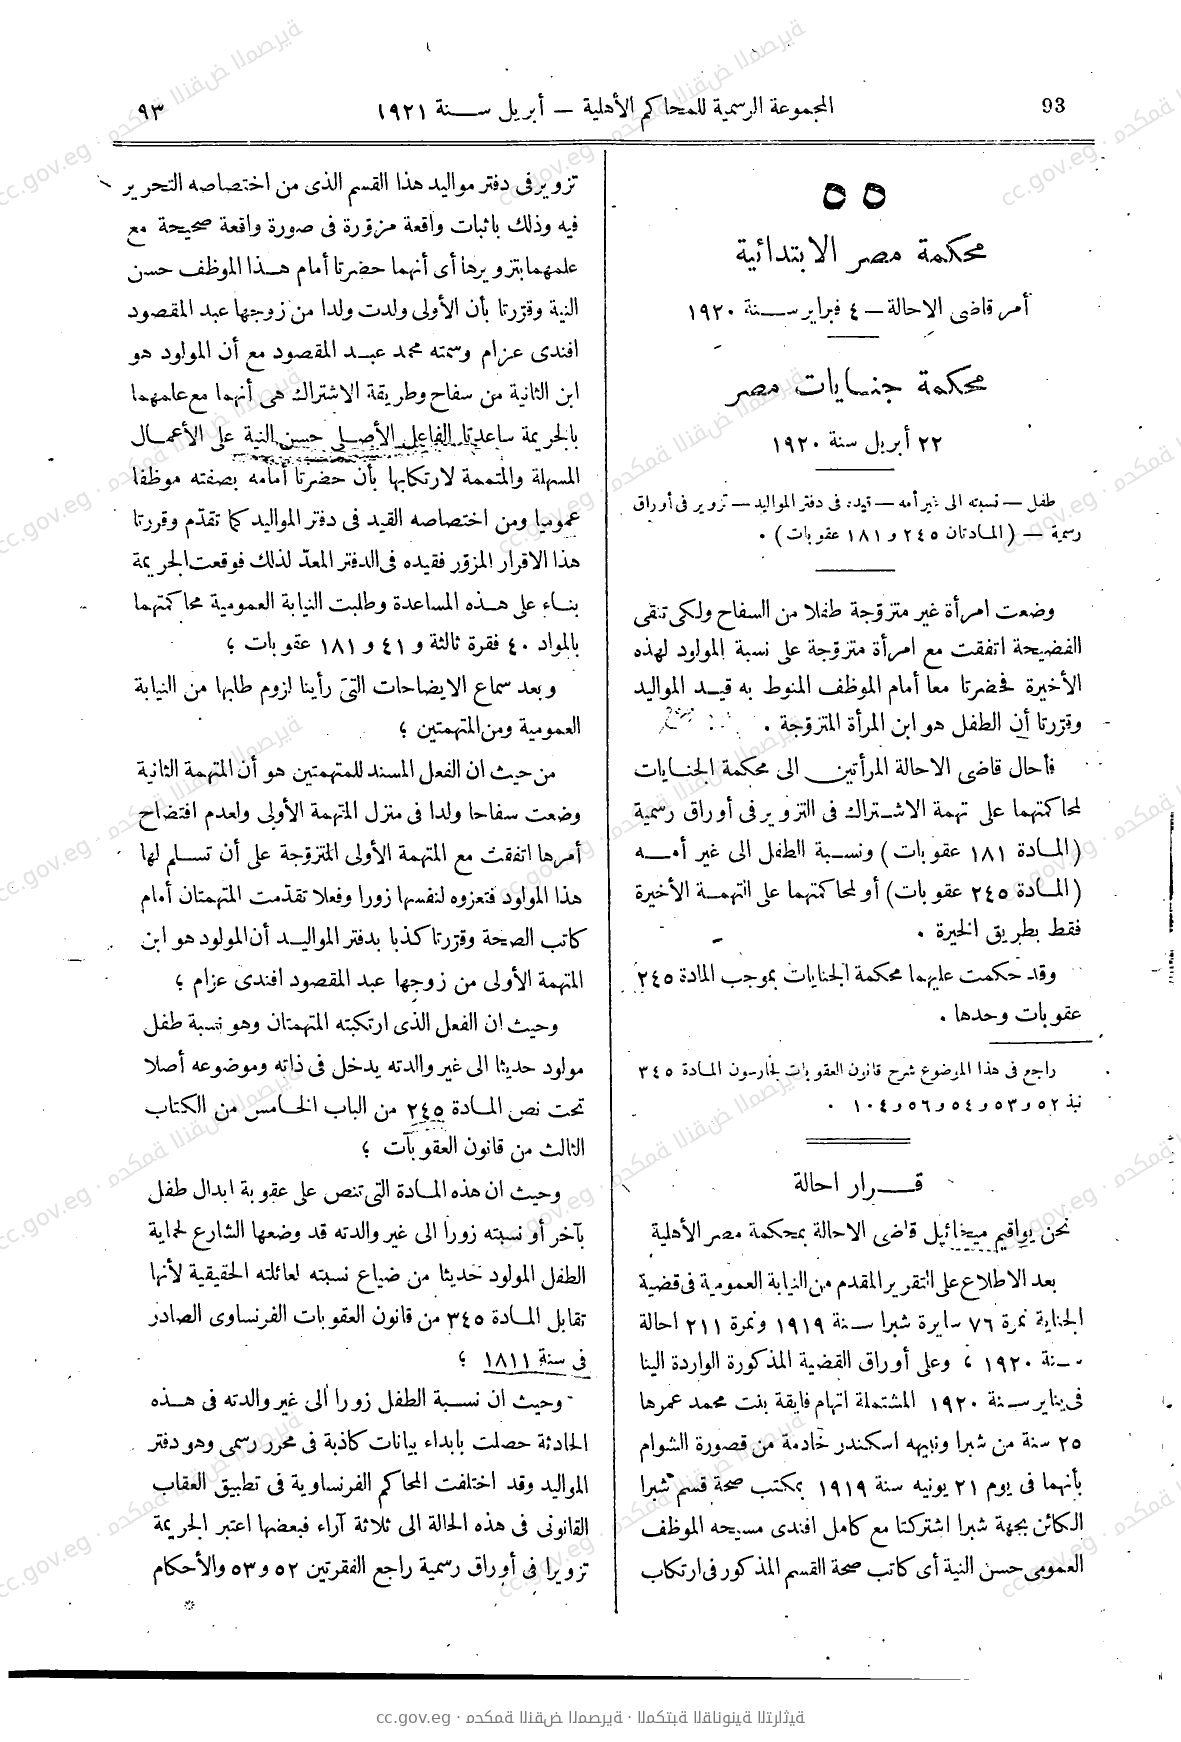 93
المجموعة الرسمية للمحاكم الأهلية — أبريل سنة ١٩٢١
٩٣
٥٥
محكمة مصر الابتدائية
أمر قاضى الاحالة — ٤ فبراير سنة ١٩٢٠
محكمة جنايات مصر
٢٢ أبريل سنة ١٩٢٠
طفل — نسبته الى غير أمه — قيده فى دفتر المواليد — تزوير فى أوراق
رسمية — (المادتان ٢٤٥ و ١٨١ عقوبات) .
وضعت امرأة غير متزوّجة طفلا من السفاح ولكى تنقى
الفضيحة اتفقت مع امرأة متزوّجة على نسبة المولود لهذه
الأخيرة فحضرتا معا أمام الموظف المنوط به قيد المواليد
وقرّرتا أن الطفل هو ابن المرأة المتزوّجة .
فأحال قاضى الاحالة المرأتين الى محكمة الجنايات
لمحاكمتهما على تهمة الاشتراك فى التزوير فى أوراق رسمية
(المادة ١٨١ عقوبات) ونسبة الطفل الى غير أمه
(المادة ٢٤٥ عقوبات) أو لمحاكمتهما على التهمة الأخيرة
فقط بطريق الخيرة .
وقد حكمت عليهما محكمة الجنايات بموجب المادة ٢٤٥
عقوبات وحدها .
راجع فى هذا الموضوع شرح قانون العقوبات لجارسون المادة ٣٤٥
نبذ ٥٢ و ٥٣ و ٥٤ و ٥٦ و ١٠٤ .
قرار احالة
نحن يواقيم ميخائيل قاضى الاحالة بمحكمة مصر الأهلية
بعد الاطلاع على التقرير المقدم من النيابة العمومية فى قضية
الجناية نمرة ٧٦ سايرة شبرا سنة ١٩١٩ ونمرة ٢١١ احالة
سنة ١٩٢٠ ، وعلى أوراق القضية المذكورة الواردة الينا
فى يناير سنة ١٩٢٠ المشتملة اتهام فايقة بنت محمد عمرها
٢٥ سنة من شبرا ونبيهه اسكندر خادمة من قصورة الشوام
بأنهما فى يوم ٢١ يونيه سنة ١٩١٩ بمكتب صحة قسم شبرا
الكائن بجهة شبرا اشتركتا مع كامل افندى مسيحه الموظف
العمومى حسن النية أى كاتب صحة القسم المذكور فى ارتكاب
تزوير فى دفتر مواليد هذا القسم الذى من اختصاصه التحرير
فيه وذلك باثبات واقعة مزوّرة فى صورة واقعة صحيحة مع
علمهما بتزويرها أى أنهما حضرتا أمام هذا الموظف حسن
النية وقرّرتا بأن الأولى ولدت ولدا من زوجها عبد المقصود
افندى عزام وسمته محمد عبد المقصود مع أن المولود هو
ابن الثانية من سفاح وطريقة الاشتراك هى أنهما مع علمهما
بالجريمة ساعدتا الفاعل الأصلى حسن النية على الأعمال
المسهلة والمتممة لارتكابها بأن حضرتا أمامه بصفته موظفا
عموميا ومن اختصاصه القيد فى دفتر المواليد كما تقدّم وقررتا
هذا الاقرار المزوّر فقيده فى الدفتر المعدّ لذلك فوقعت الجريمة
بناء على هذه المساعدة وطلبت النيابة العمومية محاكمتهما
بالمواد ٤٠ فقرة ثالثة و ٤١ و ١٨١ عقوبات ؛
وبعد سماع الايضاحات التى رأينا لزوم طلبها من النيابة
العمومية ومن المتهمتين ؛
من حيث ان الفعل المسند للمتهمتين هو أن المتهمة الثانية
وضعت سفاحا ولدا فى منزل المتهمة الأولى ولعدم افتضاح
أمرها اتفقت مع المتهمة الأولى المتزوّجة على أن تسلم لها
هذا المولود فتعزوه لنفسها زورا وفعلا تقدّمت المتهمتان أمام
كاتب الصحة وقرّرتا كذبا بدفتر المواليد أن المولود هو ابن
المتهمة الأولى من زوجها عبد المقصود افندى عزام ؛
وحيث ان الفعل الذى ارتكبته المتهمتان وهو نسبة طفل
مولود حديثا الى غير والدته يدخل فى ذاته وموضوعه أصلا
تحت نص المادة ٢٤٥ من الباب الخامس من الكتاب
الثالث من قانون العقوبات ؛
وحيث ان هذه المادة التى تنص على عقوبة ابدال طفل
بآخر أو نسبته زورا الى غير والدته قد وضعها الشارع لحماية
الطفل المولود حديثا من ضياع نسبته لعائلته الحقيقية لأنها
تقابل المادة ٣٤٥ من قانون العقوبات الفرنساوى الصادر
فى سنة ١٨١١ ؛
وحيث ان نسبة الطفل زورا الى غير والدته فى هذه
الحادثة حصلت بابداء بيانات كاذبة فى محرر رسمى وهو دفتر
المواليد وقد اختلفت المحاكم الفرنساوية فى تطبيق العقاب
القانونى فى هذه الحالة الى ثلاثة آراء فبعضها اعتبر الجريمة
تزويرا فى أوراق رسمية راجع الفقرتين ٥٢ و ٥٣ والأحكام
cc.gov.eg · محكمة النقض المصرية · المكتبة القانونية التراثية